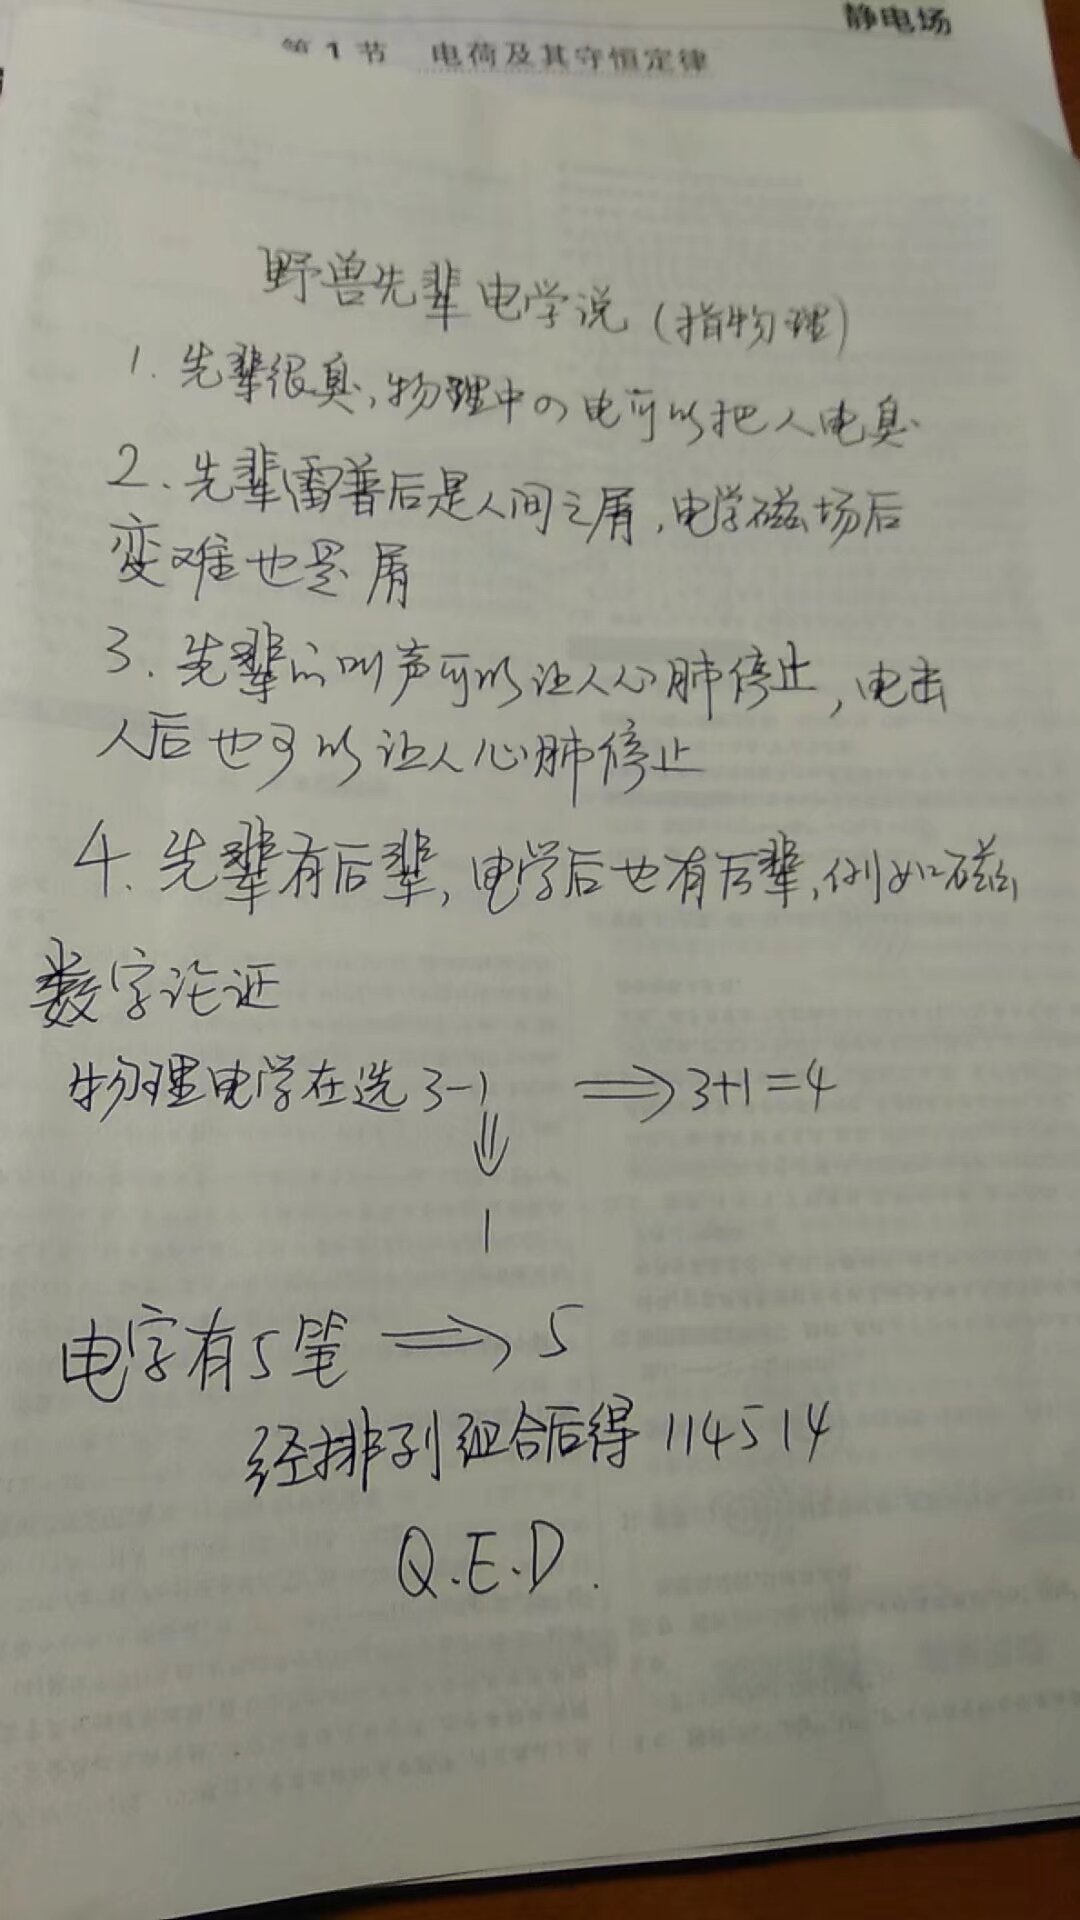 静电场
第1节 电荷及其守恒定律
野兽先辈电学说(指物理)
1.先辈很臭,物理中の电可以把人电臭.
2.先辈雷普后是人间之屑,电学磁场后
变难也是屑
3.先辈的叫声可以让人心肺停止,电击
人后也可以让人心肺停止
4.先辈有后辈,电学后也有后辈,例如磁
数字论证
物理电学在选3-1 ⟹3+1=4
⇓
1
电字有5笔 ⟹ 5
经排列组合后得114514
Q.E.D.